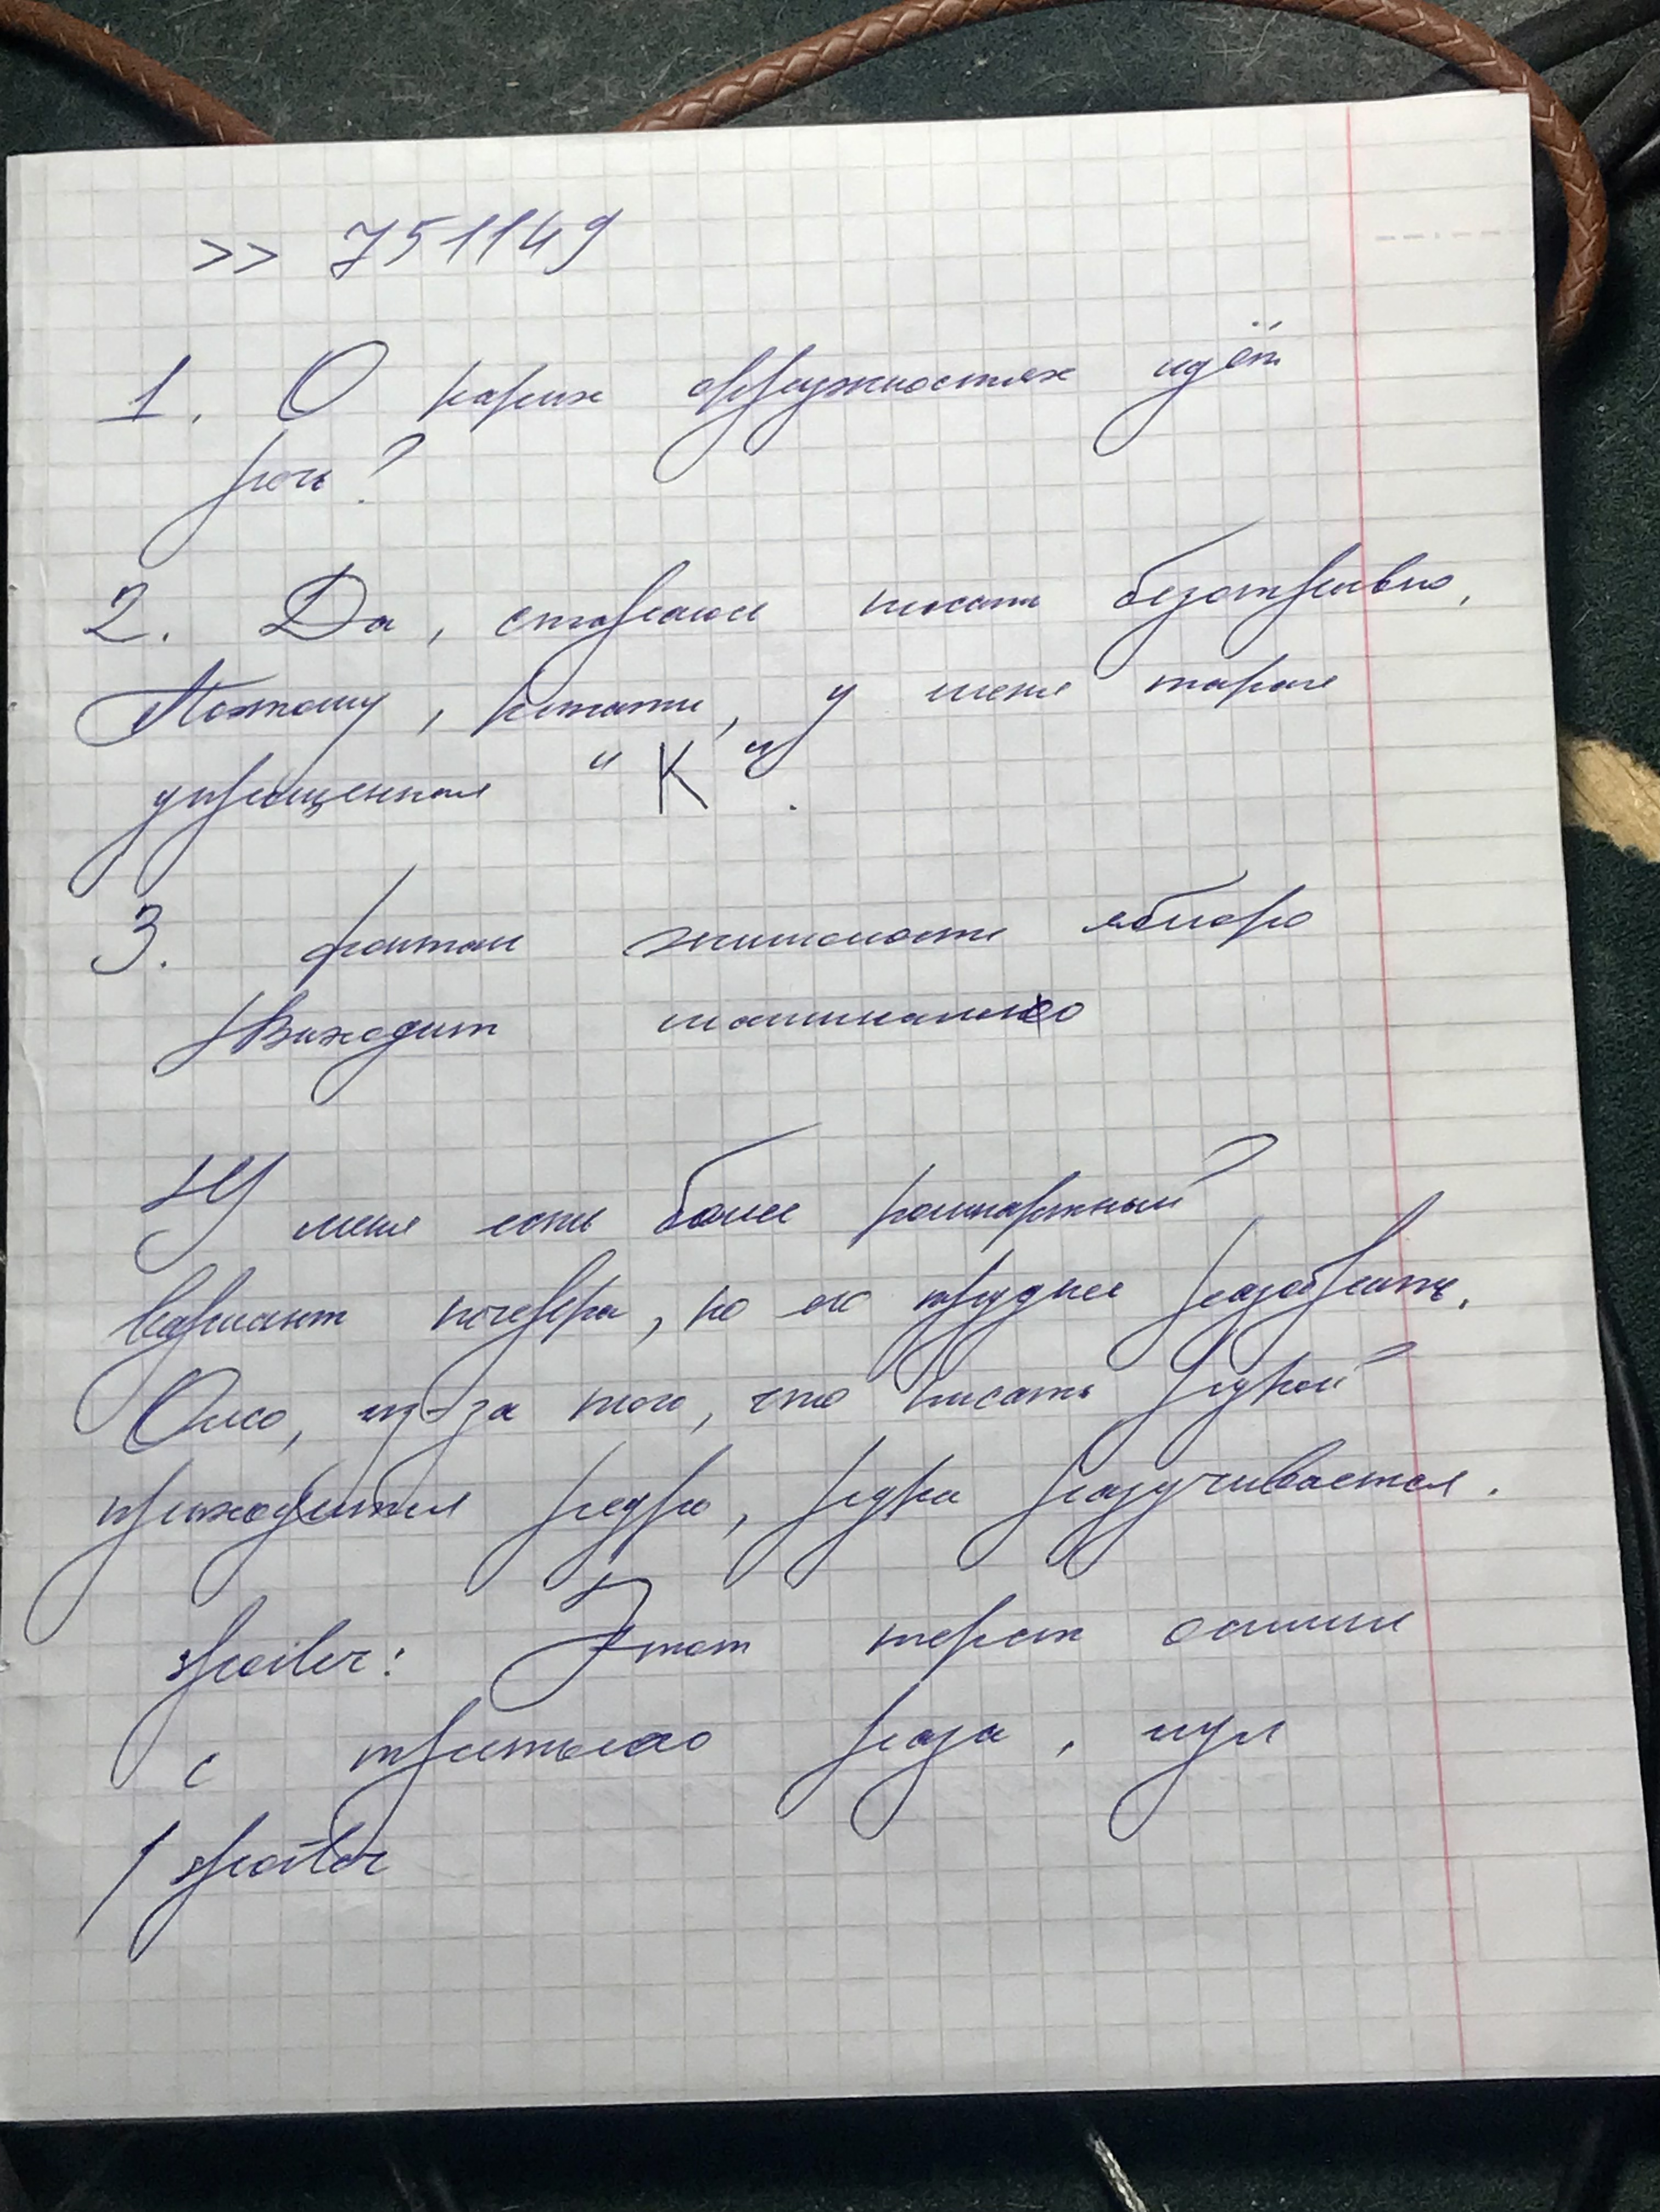 >> 751149
1. О каких окружностях идёт
речь?
2. Да, стараюсь писать безотрывно,
Поэтому, кстати, у меня такая
упрощенная "К".
3. фонтан жимолость яблоко
Выходит машинально
У меня есть более компактный
вариант почерка, но его труднее разобрать.
Ожо, из-за того, что писать рукой
приходится редко, рука разучивается.
spoiler: Этот текст осилил
с третьего раза, лул
/spoiler